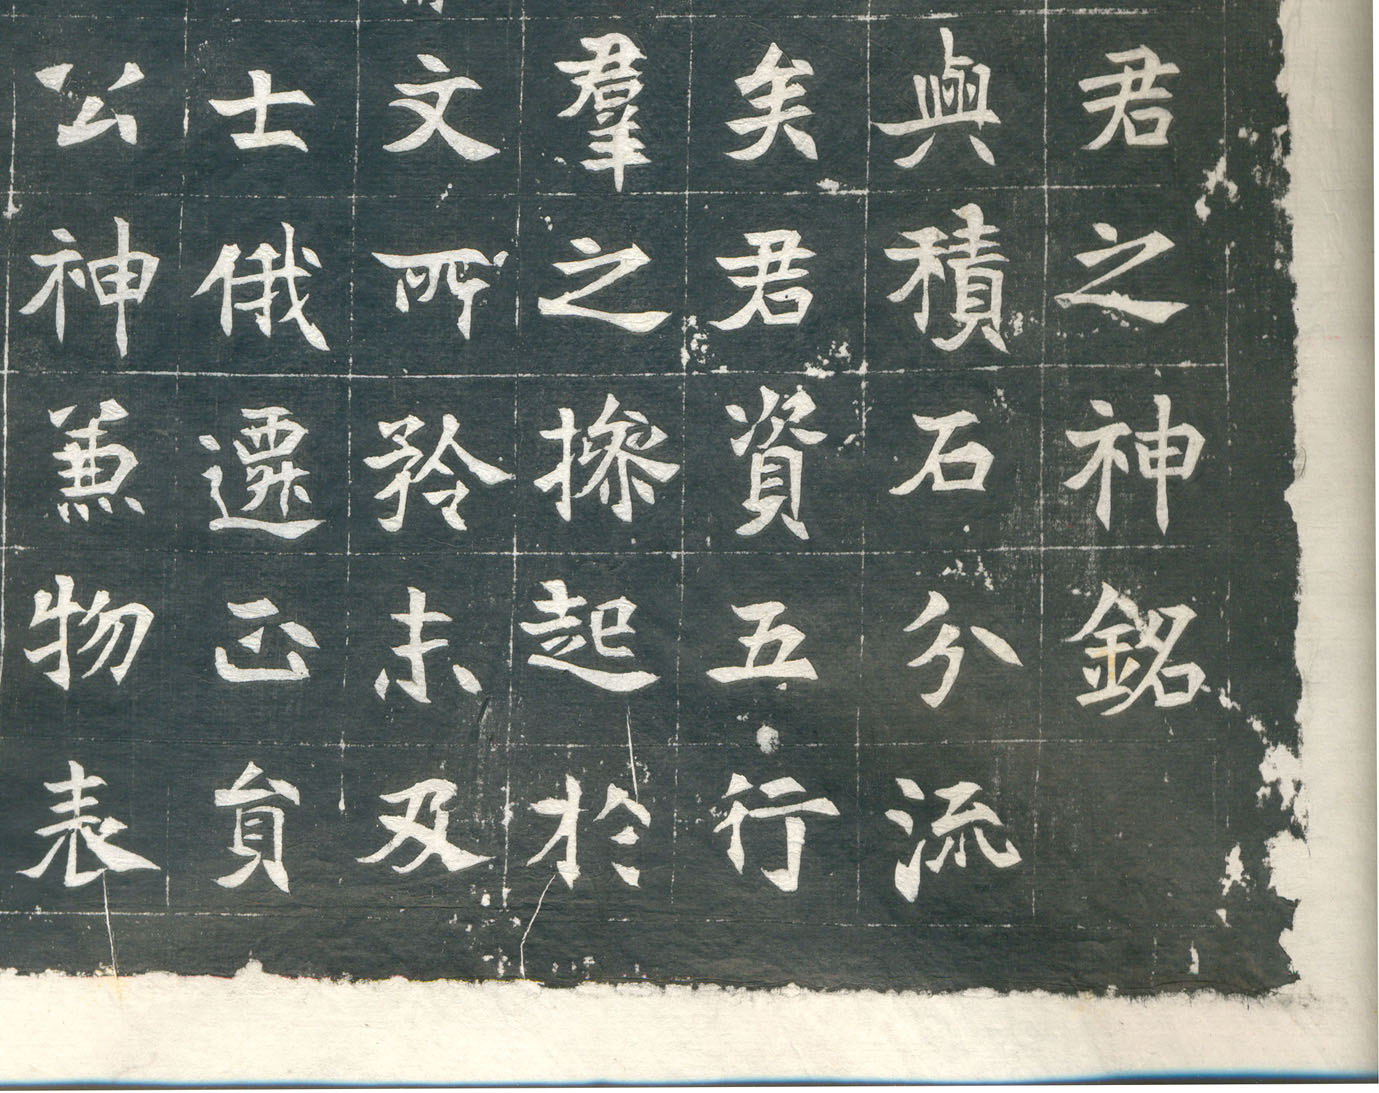 君之神銘
與積石分流
矣君資五行
羣之操起於
文所矜未及
士俄遷正貟
公神兼物表